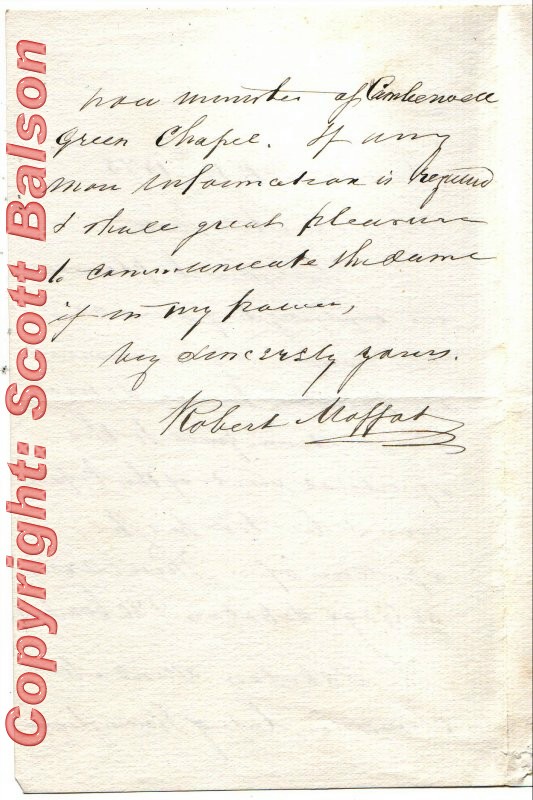 now minister of Camberwell
Green Chapel. If any
more information is required
I shall great pleasure
to communicate the same
if in my power,
Very sincerely yours.
Robert Moffat
Copyright: Scott Balson